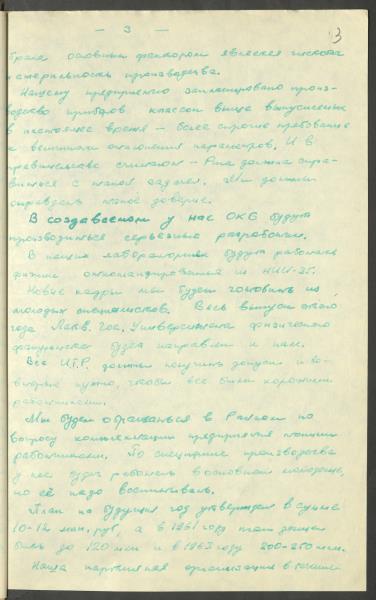 — 3 —
3
брака основным фактором является чистота
и стерильность производства.
Нашему предприятию запланировано произ-
водство приборов классом выше выпускаемых
в настоящее время — более строгие требования
к величинам отклонения параметров. И в
правительстве считают — Рига должна спра-
виться с такой задачей. Мы должны
оправдать такое доверие.
В создаваемом у нас ОКБ будут
производиться серьезные разработки.
В наших лабораториях будут работать
физики откомандированные из НИИ-35.
Новые кадры мы будем готовить из
молодых специалистов. Весь выпуск этого
года Латв. Гос. Университета физического
факультета будет направлен к нам.
Все ИТР должны получить допуск и во-
вторых нужно, чтобы все были хорошими
работниками.
Мы будем обращаться в Райком по
вопросу комплектации предприятия
работниками. По специфике производства
у нас будет работать в основном молодежь,
но её надо воспитывать.
План на будущий год утвержден в сумме
10-12 млн. руб, а в 1961 году план должен
быть до 120 млн и в 1963 году 200-250 млн.
Наша партийная организация в